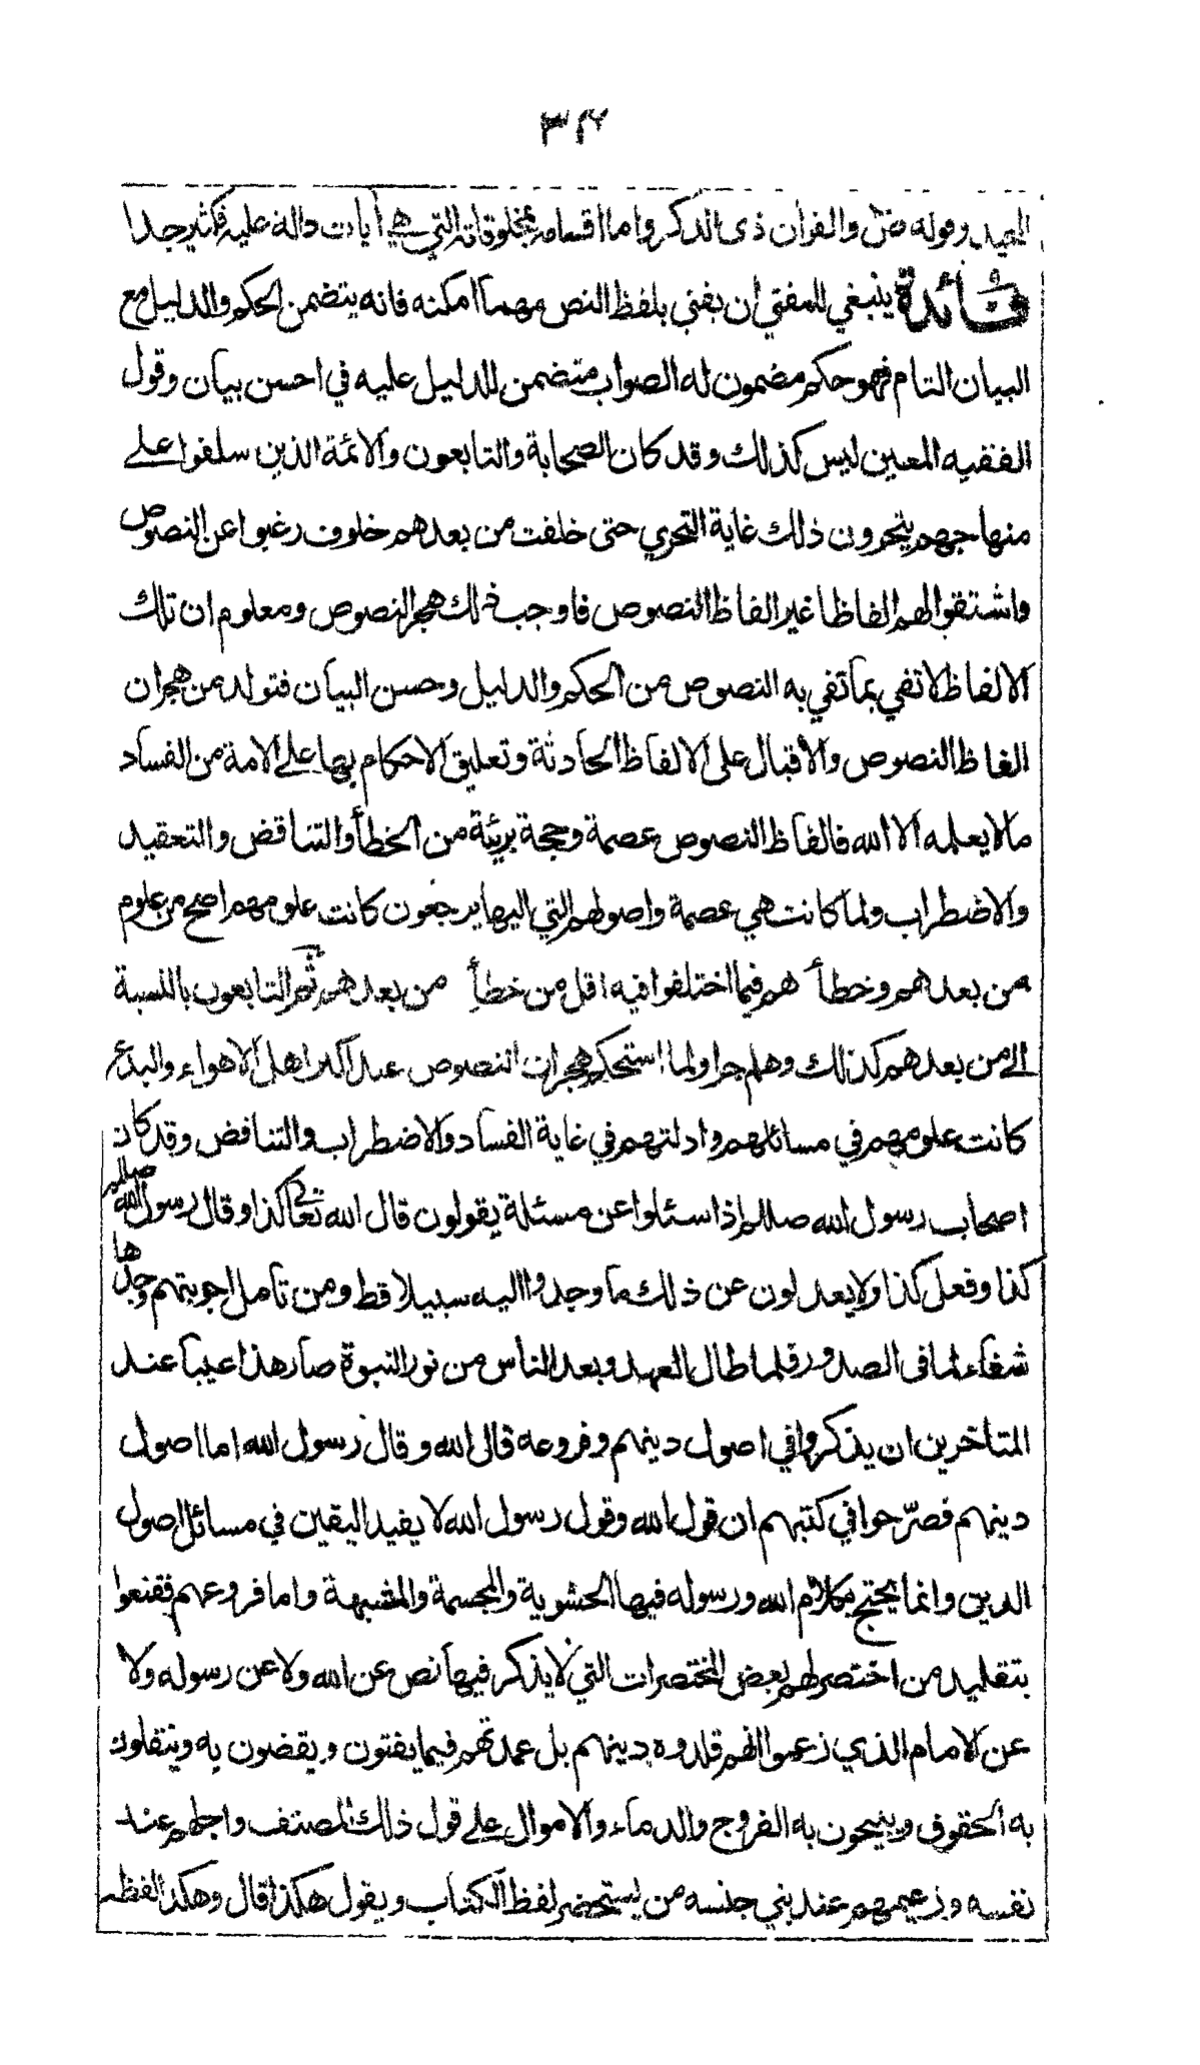 ٣٢٤
المجيد وقوله ص والقرآن ذى الذكر واما اقسامه بمخلوقاته التي هي آيات دالة عليه فكثير جدا
فائدة ينبغي للمفتي ان يفتي بلفظ النص مهما امكنه فانه يتضمن الحكم والدليل مع
البيان التام فهو حكم مضمون له الصواب متضمن للدليل عليه في احسن بيان وقول
الفقيه المعين ليس كذلك وقد كان الصحابة والتابعون والائمة الذين سلفوا على
منهاجهم يتحرون ذلك غاية التحري حتى خلفت من بعدهم خلوف رغبوا عن النصوص
واشتقوا لهم الفاظا غير الفاظ النصوص فاوجب ذلك هجر النصوص ومعلوم ان تلك
الالفاظ لا تفي بما تفي به النصوص من الحكم والدليل وحسن البيان فتولد من هجران
الفاظ النصوص والاقبال على الالفاظ الحادثة وتعليق الاحكام بها على الامة من الفساد
ما لا يعلمه الا الله فالفاظ النصوص عصمة وحجة بريئة من الخطأ والتناقض والتعقيد
والاضطراب ولما كانت هي عصمة واصولهم التي اليها يرجعون كانت علومهم اصح من علوم
من بعدهم وخطأ هم فيما اختلفوا فيه اقل من خطأ من بعدهم ثم التابعون بالنسبة
الى من بعدهم كذلك وهلم جرا ولما استحكم هجران النصوص عند اكثر اهل الاهواء والبدع
كانت علومهم في مسائلهم وادلتهم في غاية الفساد والاضطراب والتناقض وقد كان
اصحاب رسول الله صللم اذا سئلوا عن مسئلة يقولون قال الله تعالى كذا وقال رسول الله صللم
كذا وفعل كذا ولا يعدلون عن ذلك ما وجدوا اليه سبيلا قط ومن تأمل اجوبتهم وجدها
شفاء لما فى الصدور فلما طال العهد وبعد الناس من نور النبوة صار هذا عيبا عند
المتاخرين ان يذكروا في اصول دينهم وفروعه قال الله وقال رسول الله اما اصول
دينهم فصرّحوا في كتبهم ان قول الله وقول رسول الله لا يفيد اليقين في مسائل اصول
الدين وانما يحتج بكلام الله ورسوله فيها الحشوية والمجسمة والمشبهة واما فروعهم فقنعوا
بتقليد من اختصر لهم بعض المختصرات التي لا يذكر فيها نص عن الله ولا عن رسوله ولا
عن الامام الذي زعموا انهم قلدوه دينهم بل عمدتهم فيما يفتون ويقضون به وينقلون
به الحقوق ويبيحون به الفروج والدماء والاموال على قول ذلك المصنف واجلهم عند
نفسه وزعيمهم عند بني جنسه من يستحضر لفظ الكتاب ويقول هكذا قال وهكذا لفظه